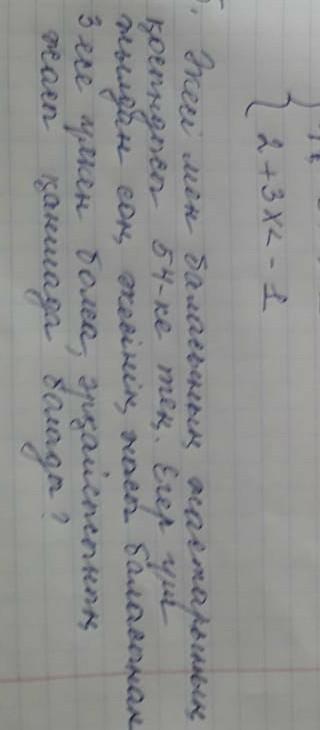 { 2 + 3x < - 1
Әкесі мен баласының жастарының
қосындысы 54-ке тең. Егер үш
жылдан соң, әкесінің жасы баласынан
3 есе үлкен болса, әрқайсысының
жасы қаншада болады?